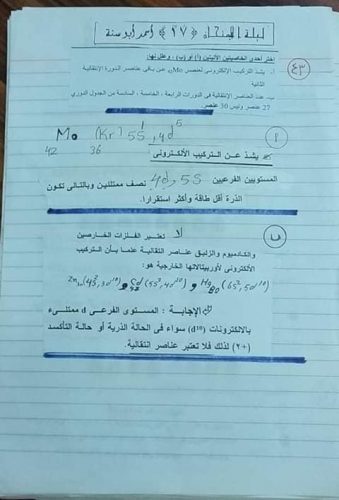 ليلة الامتحان (٢٧) أحمد أبو سنة
٤٣
اختر إحدى الخاصيتين الآتيتين (أ) أو (ب) ، وعللها:
أ- يشذ التركيب الإلكتروني لعنصر Mo₄₂ عن باقي عناصر الدورة الانتقالية
الثانية
ب- عدد العناصر الانتقالية في الدورات الرابعة ، الخامسة ، السادسة من الجدول الدوري
27 عنصر وليس 30 عنصر.
أ
Mo (Kr) 5S¹, 4d⁵
42 36
يشذ عن التركيب الالكترونى
المستويين الفرعيين 4d, 5S نصف ممتلئين وبالتالى تكون
الذرة أقل طاقة وأكثر استقرارا.
ب
لا تعتبر الفلزات الخارصين
والكادميوم والزئبق عناصر انتقالية علما بأن التركيب
الالكترونى لأوربيتالاتها الخارجية هو:
Zn₃₀(4S², 3d¹⁰) و Cd(5S², 4d¹⁰) و Hg₈₀(6S², 5d¹⁰)
الإجابة : المستوى الفرعى d ممتلىء
بالالكترونات (d¹⁰) سواء فى الحالة الذرية أو حالة التأكسد
(+٢) لذلك فلا تعتبر عناصر انتقالية.